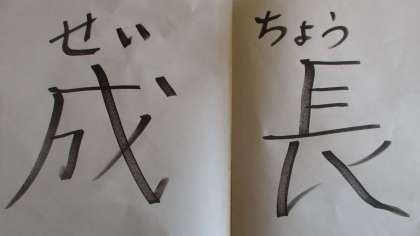 せい ちょう
成長